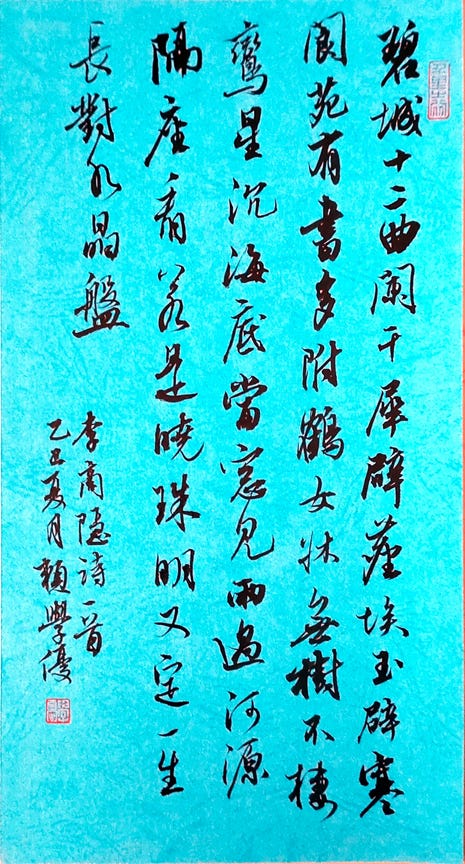 碧城十二曲闌干犀辟塵埃玉辟寒
閬苑有書多附鶴女牀無樹不棲
鸞星沉海底當窓見雨過河源
隔座看若是曉珠明又定一生
長對水晶盤
李商隐詩一首
乙丑夏月頼學優